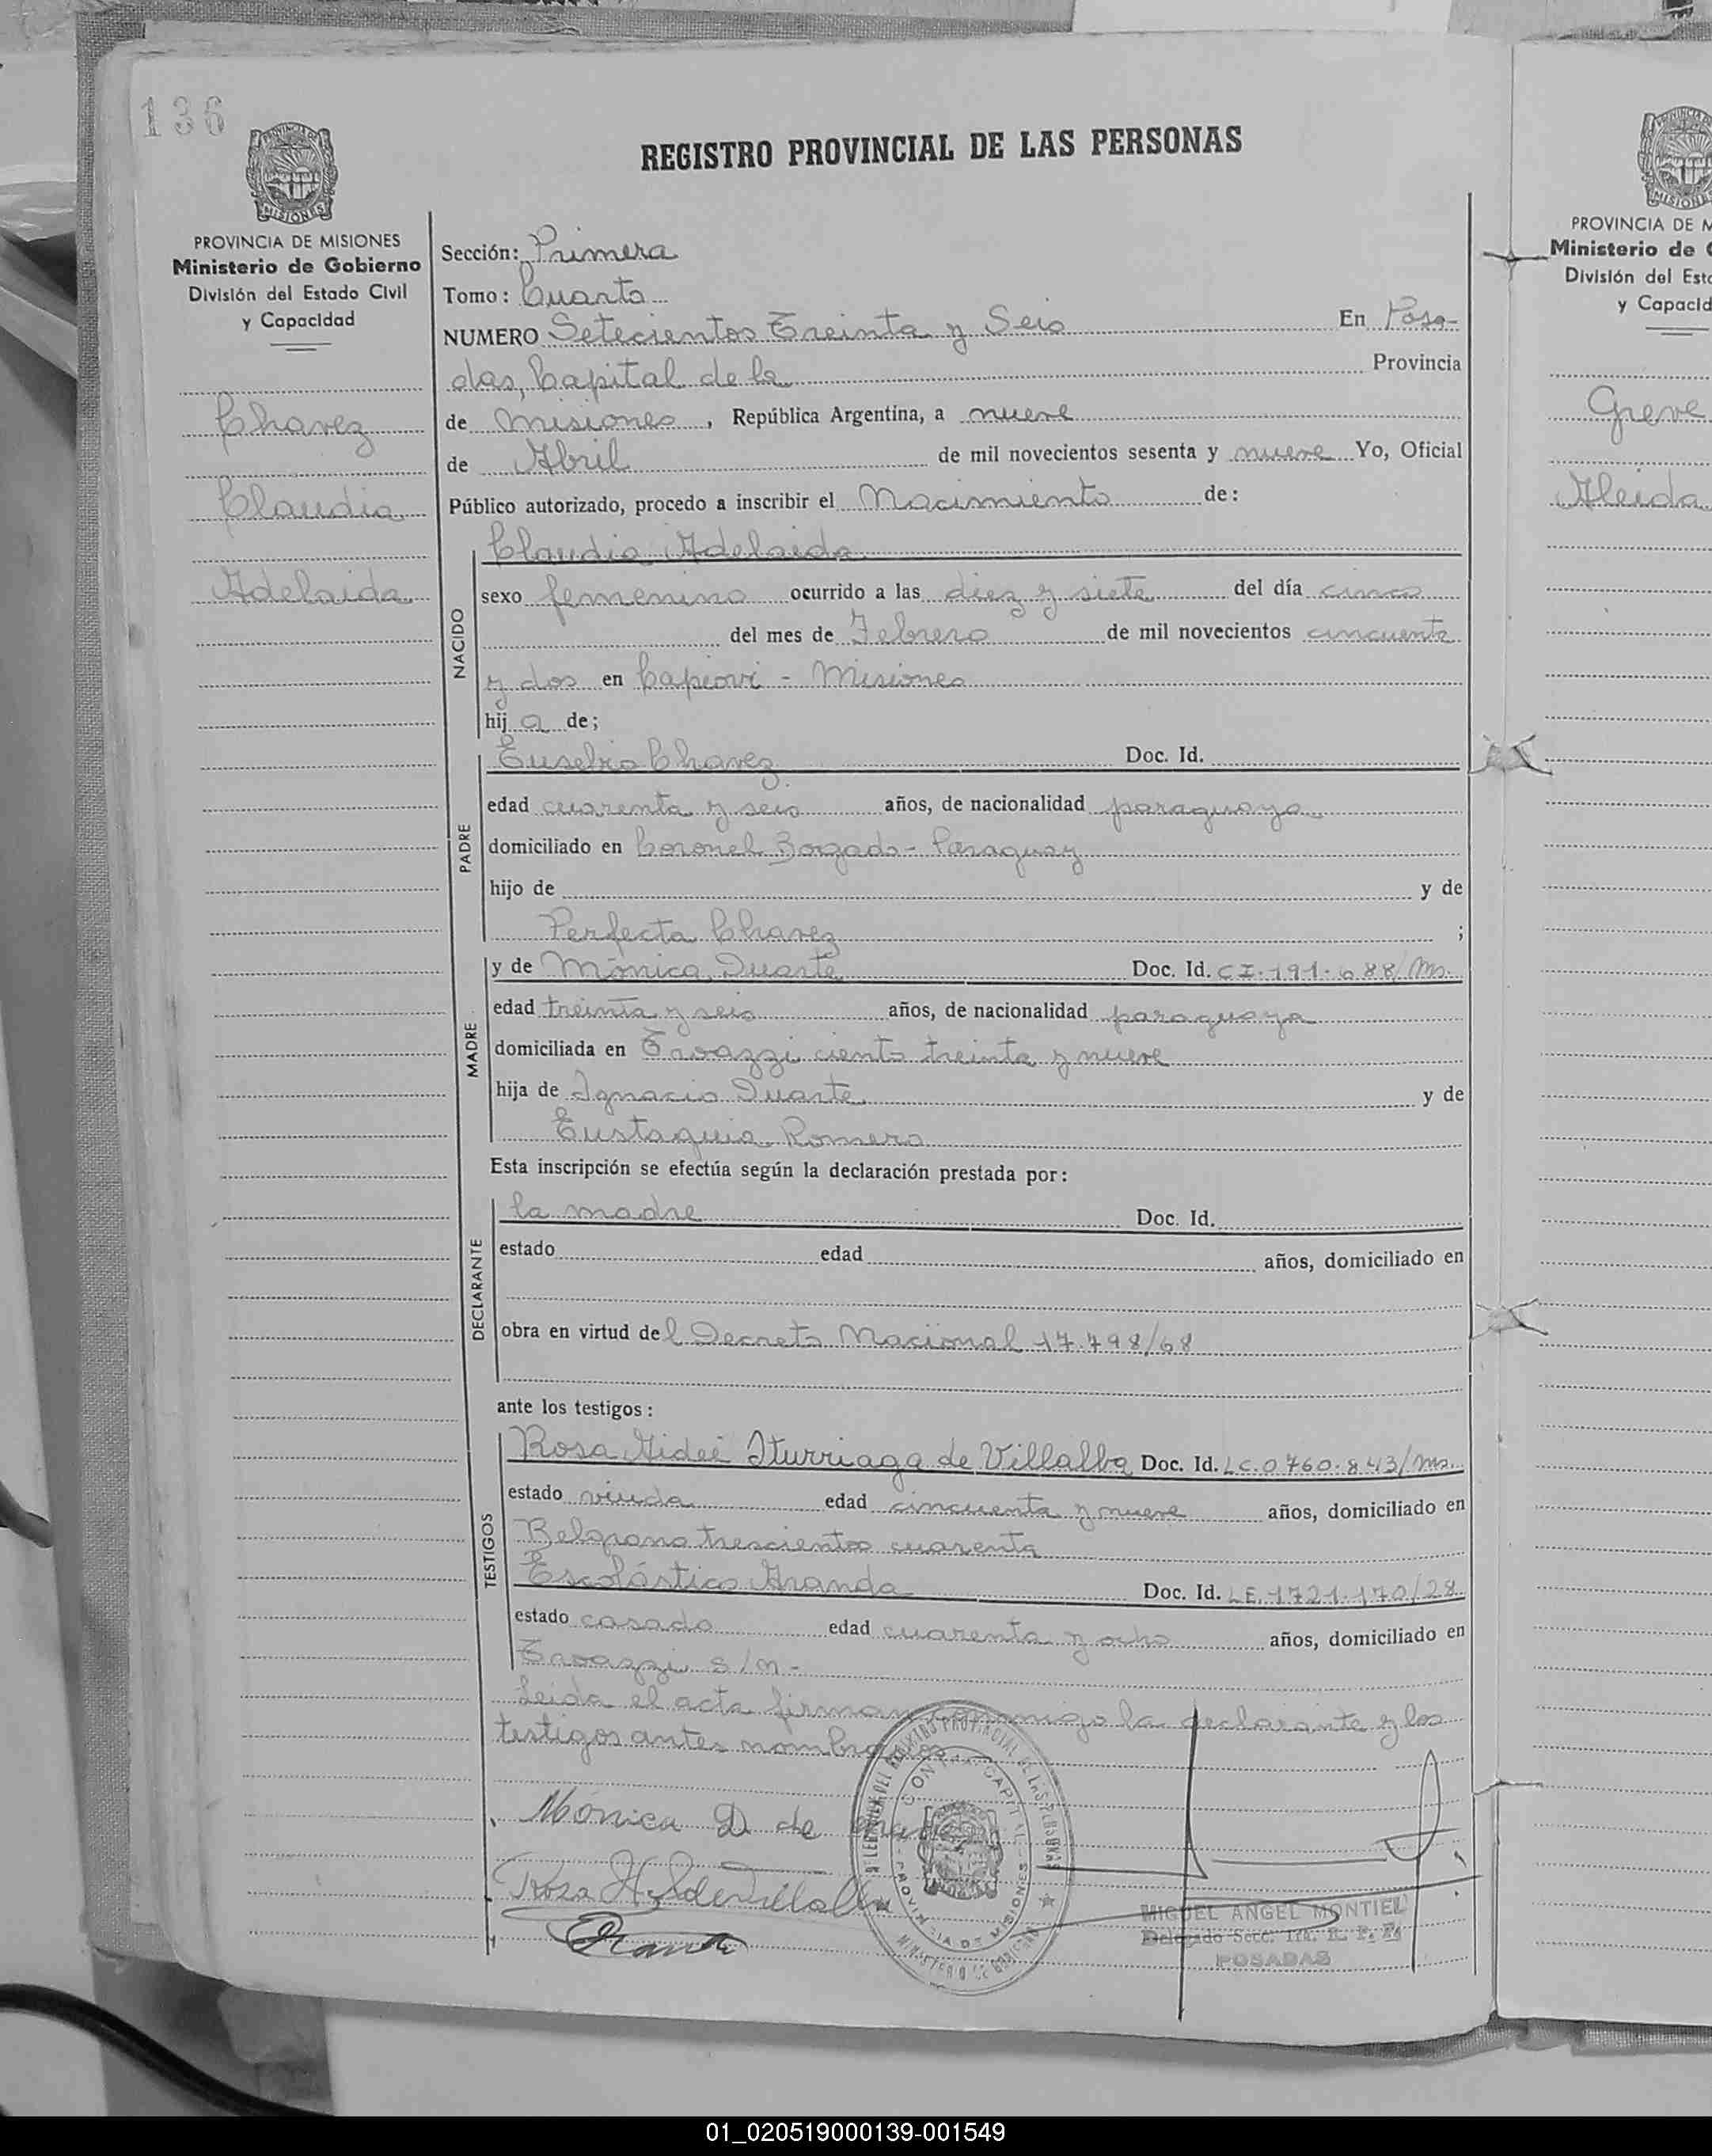 136
REGISTRO PROVINCIAL DE LAS PERSONAS
MISIONES
PROVINCIA DE MISIONES
Ministerio de Gobierno
División del Estado Civil
y Capacidad
Chavez
Claudia
Adelaida
Sección: Primera
Tomo: Cuarto
NUMERO Setecientos Treinta y Seis En Posa-
das, Capital de la Provincia
de Misiones, República Argentina, a nueve
de Abril de mil novecientos sesenta y nueve Yo, Oficial
Público autorizado, procedo a inscribir el Nacimiento de:
NACIDO
Claudia Adelaida
sexo femenino ocurrido a las diez y siete del día cinco
del mes de Febrero de mil novecientos cincuenta
y dos en Capiovi - Misiones
hij a de;
PADRE
Eusebio Chavez Doc. Id.
edad cuarenta y seis años, de nacionalidad paraguaya
domiciliado en Coronel Bogado - Paraguay
hijo de y de
Perfecta Chavez ;
MADRE
y de Mónica Duarte Doc. Id. CI. 191.688/Ms.
edad treinta y seis años, de nacionalidad paraguaya
domiciliada en ciento treinta y nueve
hija de Ignacio Duarte y de
Eustaquia Romero
Esta inscripción se efectúa según la declaración prestada por:
DECLARANTE
la madre Doc. Id.
estado edad años, domiciliado en
obra en virtud del Decreto Nacional 17.798/68
ante los testigos:
TESTIGOS
Rosa Aideé Iturriaga de Villalba Doc. Id. LC. 0760.843/Ms.
estado viuda edad cincuenta y nueve años, domiciliado en
Belgrano trescientos cuarenta
Escolástico Aranda Doc. Id. LE. 1721.170/28
estado casado edad cuarenta y ocho años, domiciliado en
s/n-
Leida el acta firman conmigo la declarante y los
testigos antes nombrados
Mónica D. de
Rosa H. I. de Villalba
MIGUEL ANGEL MONTIEL
POSADAS
PROVINCIA DE M
Ministerio de G
División del Esta
y Capacid
Greve
Aleida
01_020519000139-001549